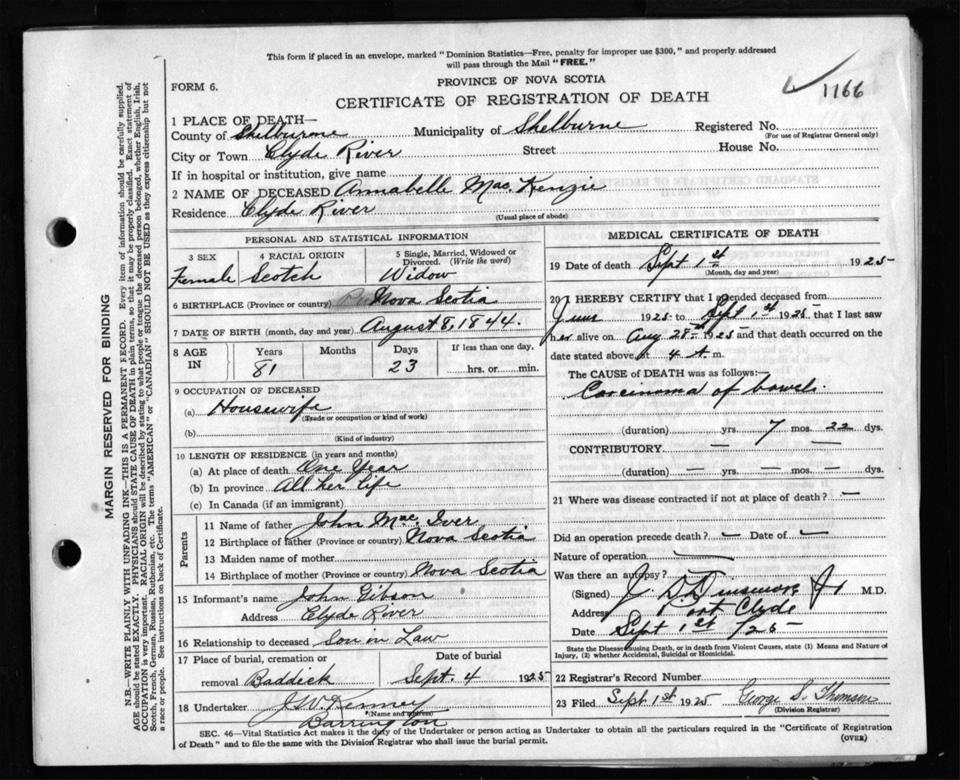 This form if placed in an envelope, marked "Dominion Statistics—Free, penalty for improper use $300," and properly addressed
will pass through the Mail "FREE."
PROVINCE OF NOVA SCOTIA
FORM 6.
CERTIFICATE OF REGISTRATION OF DEATH
1166
1 PLACE OF DEATH—
County of Shelburne Municipality of Shelburne Registered No.
(For use of Registrar General only)
City or Town Clyde River Street House No.
If in hospital or institution, give name
2 NAME OF DECEASED Annabelle Mac. Kenzie
Residence Clyde River
(Usual place of abode)
PERSONAL AND STATISTICAL INFORMATION
3 SEX 4 RACIAL ORIGIN 5 Single, Married, Widowed or Divorced. (Write the word)
Female Scotch Widow
6 BIRTHPLACE (Province or country) Nova Scotia
7 DATE OF BIRTH (month, day and year) August 8, 1844.
8 AGE IN Years Months Days If less than one day,
81 23 hrs. or min.
9 OCCUPATION OF DECEASED
(a) Housewife
(Trade or occupation or kind of work)
(b)
(Kind of industry)
10 LENGTH OF RESIDENCE (in years and months)
(a) At place of death One Year
(b) In province All her life
(c) In Canada (if an immigrant)
Parents
11 Name of father John Mac. Iver
12 Birthplace of father (Province or country) Nova Scotia
13 Maiden name of mother
14 Birthplace of mother (Province or country) Nova Scotia
15 Informant's name John Gibson
Address Clyde River
16 Relationship to deceased Son in Law
17 Place of burial, cremation or Date of burial
removal Baddeck Sept. 4 1925
18 Undertaker J.W. Kenney
(Name and address)
Barrington
MEDICAL CERTIFICATE OF DEATH
19 Date of death Sept 1st 1925
(Month, day and year)
20 I HEREBY CERTIFY that I attended deceased from
June 1925 to Sept 1st 1925 that I last saw
her alive on Aug 28th 1925 and that death occurred on the
date stated above at 4 A. m.
The CAUSE of DEATH was as follows:
Carcinoma of bowels.
(duration) yrs. 7 mos. 22 dys.
CONTRIBUTORY — —
(duration) — yrs. — mos. — dys.
21 Where was disease contracted if not at place of death? —
Did an operation precede death? — Date of —
Nature of operation —
Was there an autopsy?
(Signed) M.D.
Address Port Clyde
Date Sept 1st /25
State the Disease causing Death, or in death from Violent Causes, state (1) Means and Nature of
Injury, (2) whether Accidental, Suicidal or Homicidal.
22 Registrar's Record Number
23 Filed Sept 1st 1925 George S. Thomson
(Division Registrar)
SEC. 46—Vital Statistics Act makes it the duty of the Undertaker or person acting as Undertaker to obtain all the particulars required in the "Certificate of Registration
of Death" and to file the same with the Division Registrar who shall issue the burial permit.
(OVER)
MARGIN RESERVED FOR BINDING
N.B.—WRITE PLAINLY WITH UNFADING INK—THIS IS A PERMANENT RECORD. Every item of information should be carefully supplied.
AGE should be stated EXACTLY. PHYSICIANS should STATE CAUSE OF DEATH in plain terms, so that it may be properly classified. Exact statement of
OCCUPATION is very important. RACIAL ORIGIN will be described by stating to what people or tongue the deceased person belonged, whether English, Irish,
Scotch, French, German, Russian, Ruthenian, etc. The terms "AMERICAN" or "CANADIAN" SHOULD NOT BE USED as they express citizenship but not
a race or people. See instructions on back of Certificate.